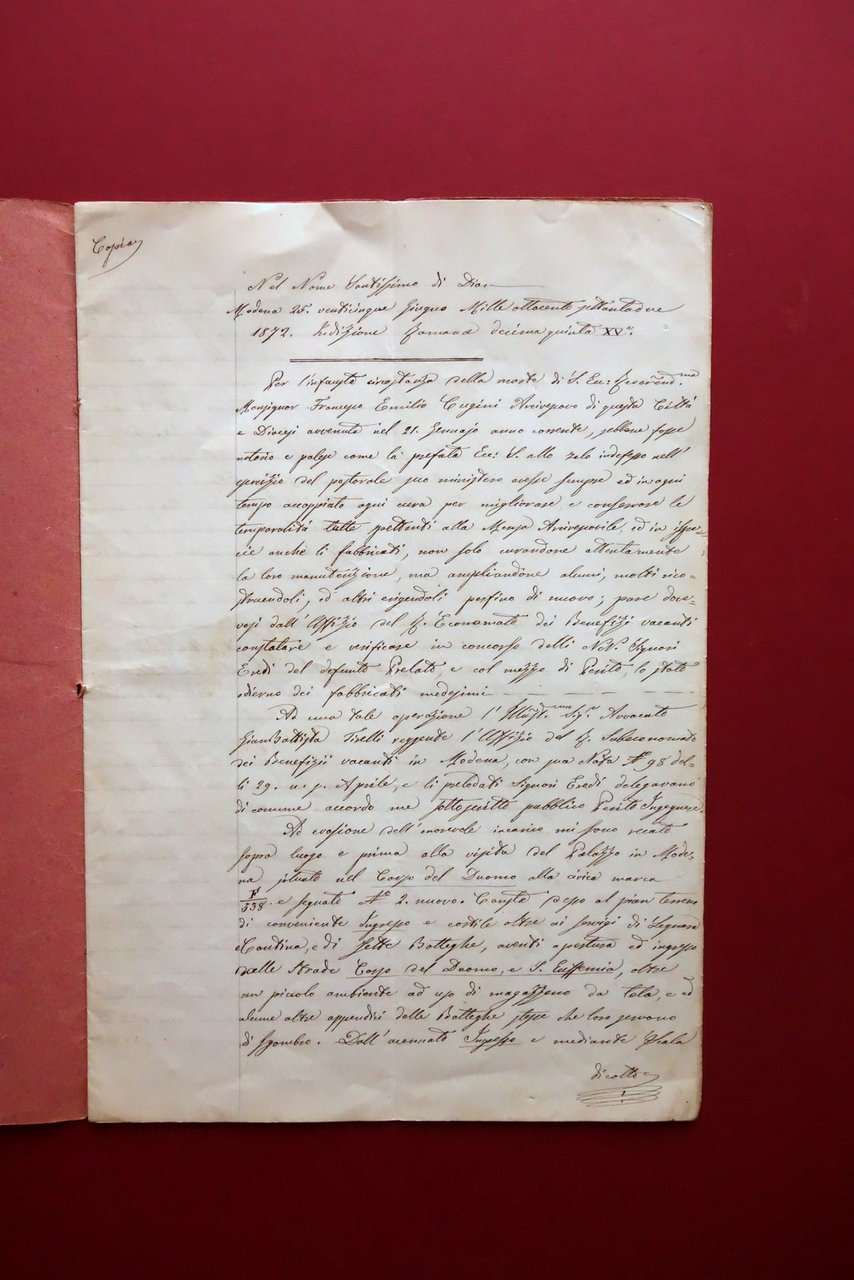 Copia
Nel Nome Santissimo di Dio.
Modena 25. venticinque Giugno Mille ottocento settantadue
1872. Indizione Romana decimaquinta XVa.
Per l'infausta circostanza della morte di S. Ec: Reverend.ma
Monsignor Francesco Emilio Cugini Arcivescovo di questa Città
e Diocesi avvenuta nel 21. Gennajo anno corrente, sebbene fosse
notorio e palese come la prefata Ec: S. allo zelo indefesso nell'
esercizio del pastorale suo ministero avesse sempre ed in ogni
tempo accoppiato ogni cura per migliorare e conservare le
temporalità tutte spettanti alla Mensa Arcivescovile, ed in ispe-
cie anche li fabbricati, non solo curandone attentamente
la loro manutenzione, ma ampliandone alcuni, molti rico-
struendoli, ed altri erigendoli perfino di nuovo; pure dove-
vasi dall'Uffizio del R. Economato dei Benefizi vacanti
constatare e verificare in concorso delli Nob. Signori
Eredi del defunto Prelato, e col mezzo di Perito, lo stato
odierno dei fabbricati medesimi
Ad una tale operazione l'Illust.mo Sig.r Avvocato
GianBattista Tiselli reggente l'Uffizio del R. Subeconomato
dei Benefizii vacanti in Modena, con sua Nota N.° 98 del-
li 29. a. p. Aprile, e li prelodati Signori Eredi delegavano
di comune accordo me sottoscritto pubblico Perito Ingegnere.
Ad evasione dell'onorevole incarico mi sono recato
sopra luogo e prima alla visita del Palazzo in Mode-
na situato nel Corso del Duomo alla civica marca
F/538 e segnato N.° 2. nuovo. Consta desso al pian terreno
di conveniente Ingresso e cortile oltre ai servigi di Legnara
e Cantina, e di Sette Botteghe, aventi apertura ed ingresso
dalle Strade Corso del Duomo, e S. Euffemia, oltre
un piccolo ambiente ad uso di magazzeno da tela, e ad
alcune altre appendici delle Botteghe stesse che loro servono
di sgombro. Dall'accennato Ingresso e mediante Scala